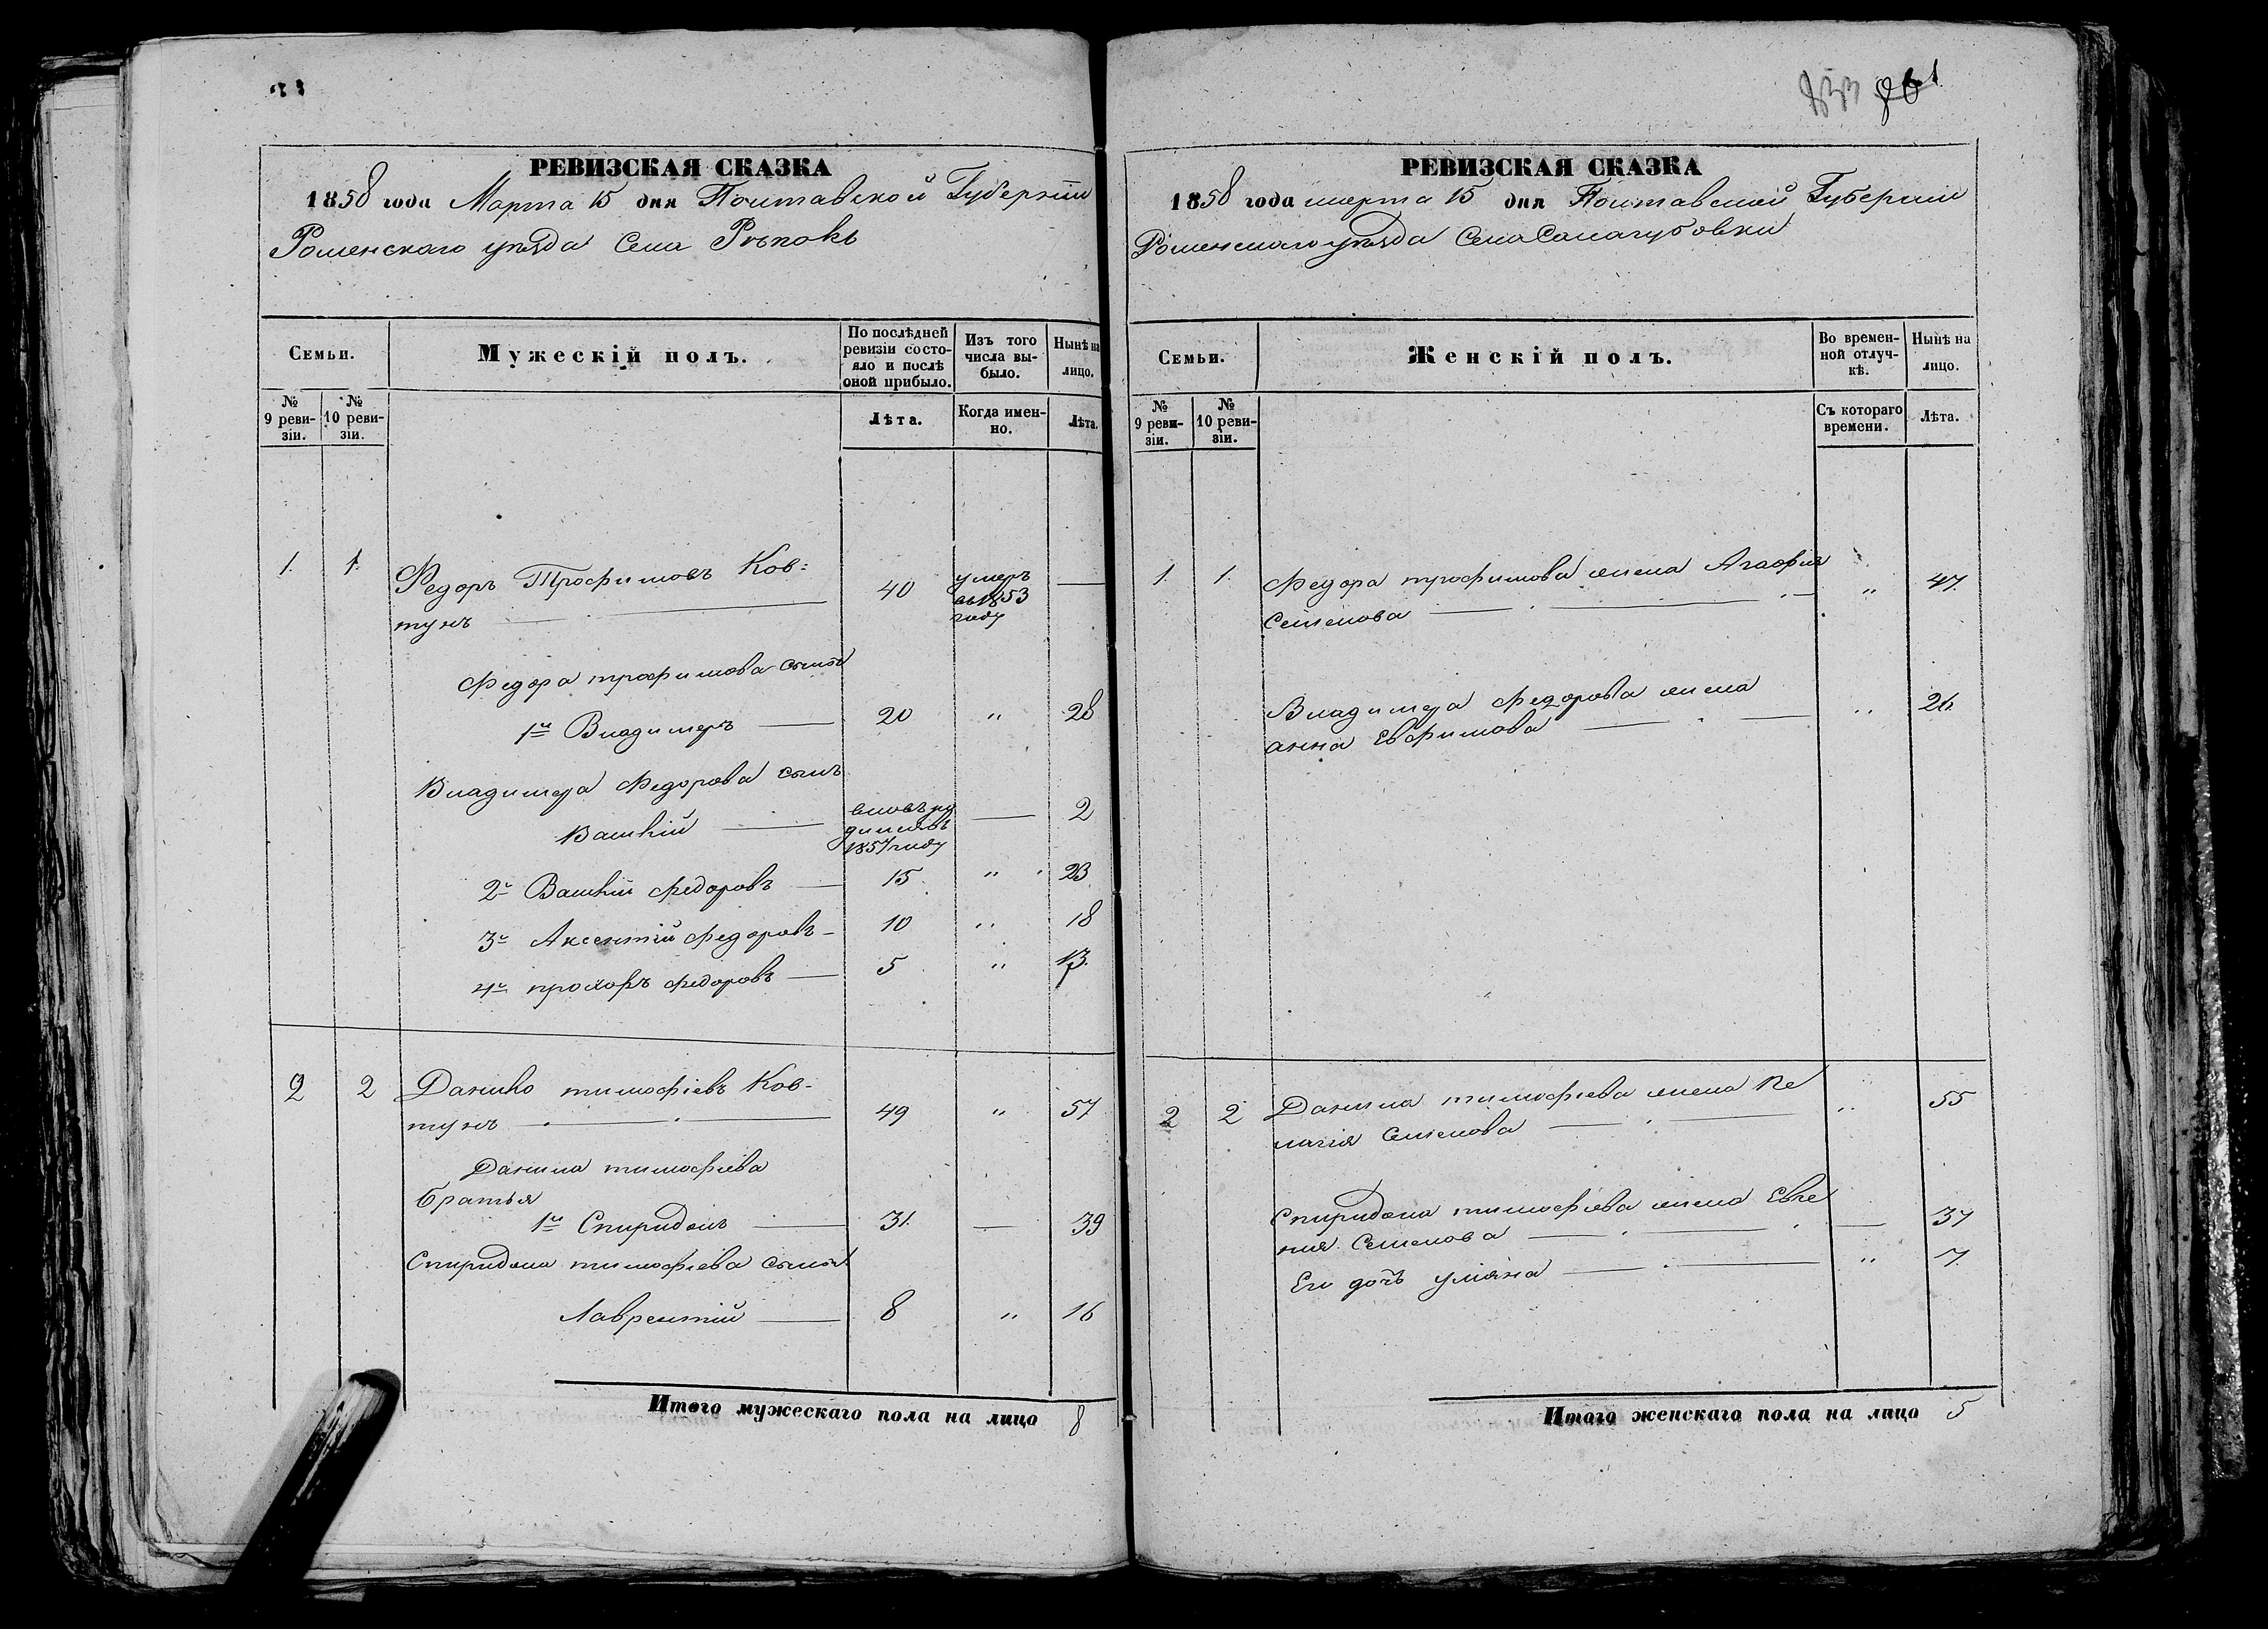 861
РЕВИЗСКАЯ СКАЗКА
1858 года Марта 15 дня Полтавской Губерніи
Роменскаго уѣзда Села Рѣпокъ
Семьи.
Мужескій полъ.
По послѣдней ревизіи состояло и послѣ оной прибыло.
Изъ того числа выбыло.
Нынѣ на лицо.
№ 9 ревизіи.
№ 10 ревизіи.
Лѣта.
Когда именно.
Лѣта.
1. 1. Федоръ Трофимовъ Ков=
тунъ 40 умеръ въ 1853 году —
Федора трофимова сыновья
1й Владимеръ — 20 " 28
Владимера Федорова сынъ
Василій — вновь родился 1857 году — 2
2й Василій Федоровъ — 15 " 23
3й Аксентій Федоровъ — 10 " 18
4й прохоръ Федоровъ — 5 " 13.
2 2 Данило тимофіевъ Ков-
тунъ — 49 " 57
Данила тимофіева
братья
1й Спиридонъ — 31. — 39
Спиридона тимофіева сынъ
Лаврентій — 8 " 16
Итого мужескаго пола на лицо 8
РЕВИЗСКАЯ СКАЗКА
1858 года марта 15 дня Полтавской Губерніи
Роменскаго уѣзда Села
Семьи.
Женскій полъ.
Во временной отлучкѣ.
Нынѣ на лицо.
№ 9 ревизіи.
№ 10 ревизіи.
Съ котораго времени.
Лѣта.
1. 1. Федора трофимова жена Агафия
Семенова — " 47.
Владимера Федорова жена
анна Евфимова — " 26.
2 2 Данила тимофіева жена Пе
лагія Семенова — " 55
Спиридона тимофіева жена Евге
ния Семенова — 37
Его дочъ уліяна — " 7.
Итого женскаго пола на лицо 5